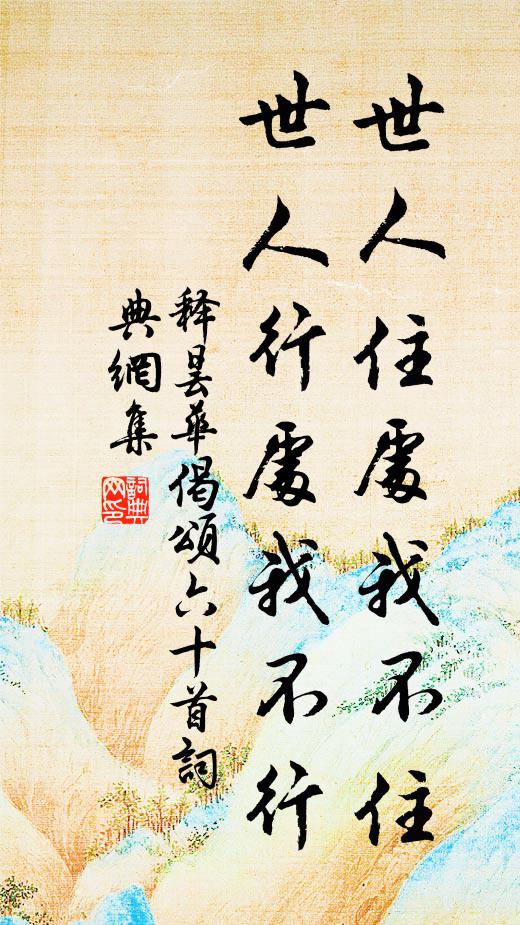 世人住處我不住
世人行處我不行
释曇華偈頌六十首詞
典網集
詞典
网印